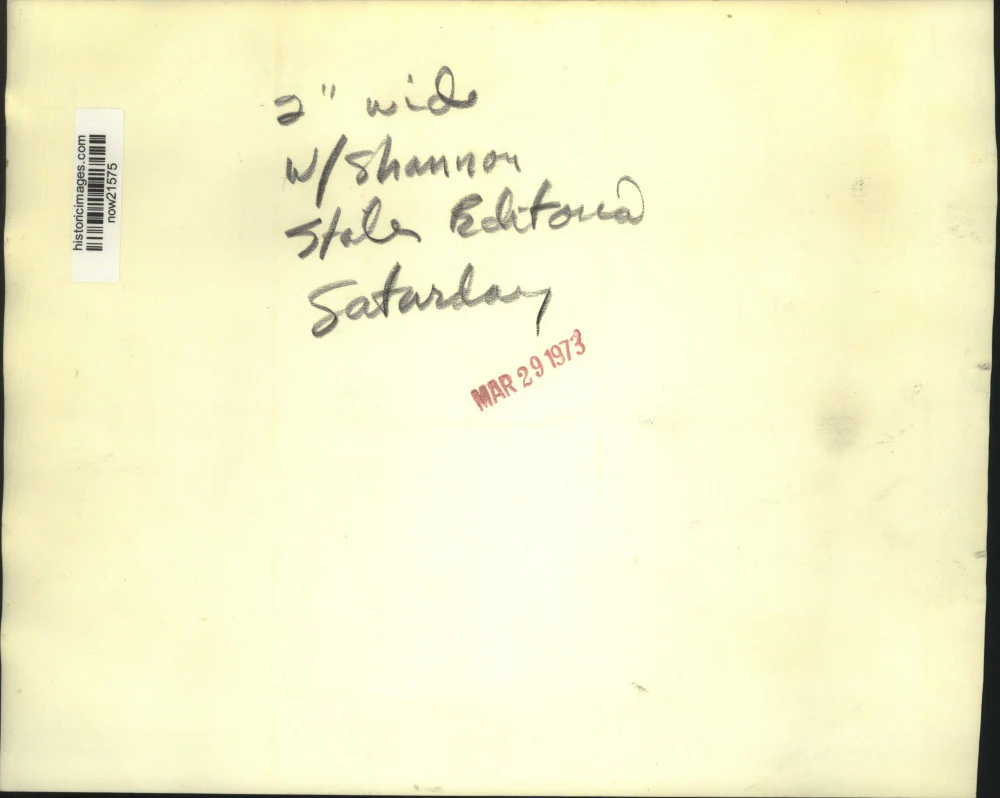 2" wide
W/Shannon
States Editorial
Saturday
MAR 29 1973
historicimages.com
now21575